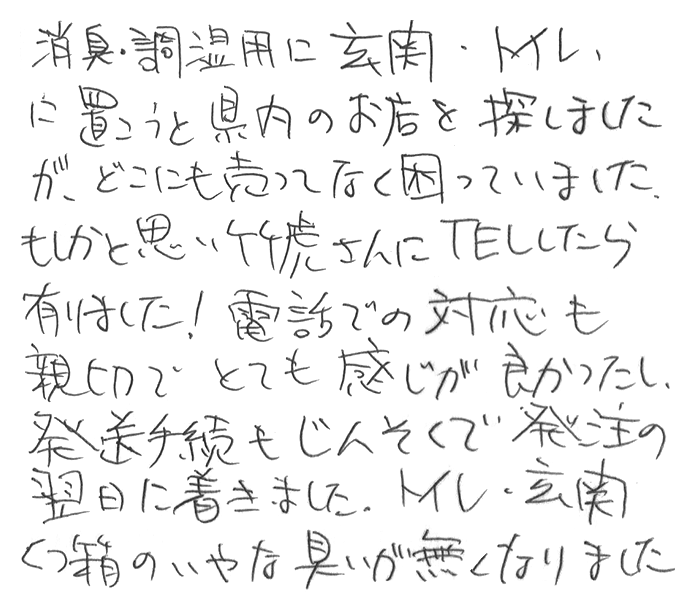 消臭・調湿用に玄関・トイレ、
に置こうと県内のお店を探しました
が、どこにも売ってなく困っていました。
もしかと思い竹虎さんにTELしたら
有りました！電話での対応も
親切でとても感じが良かったし、
発送手続もじんそくで発注の
翌日に着きました。トイレ・玄関
くつ箱のいやな臭いが無くなりました